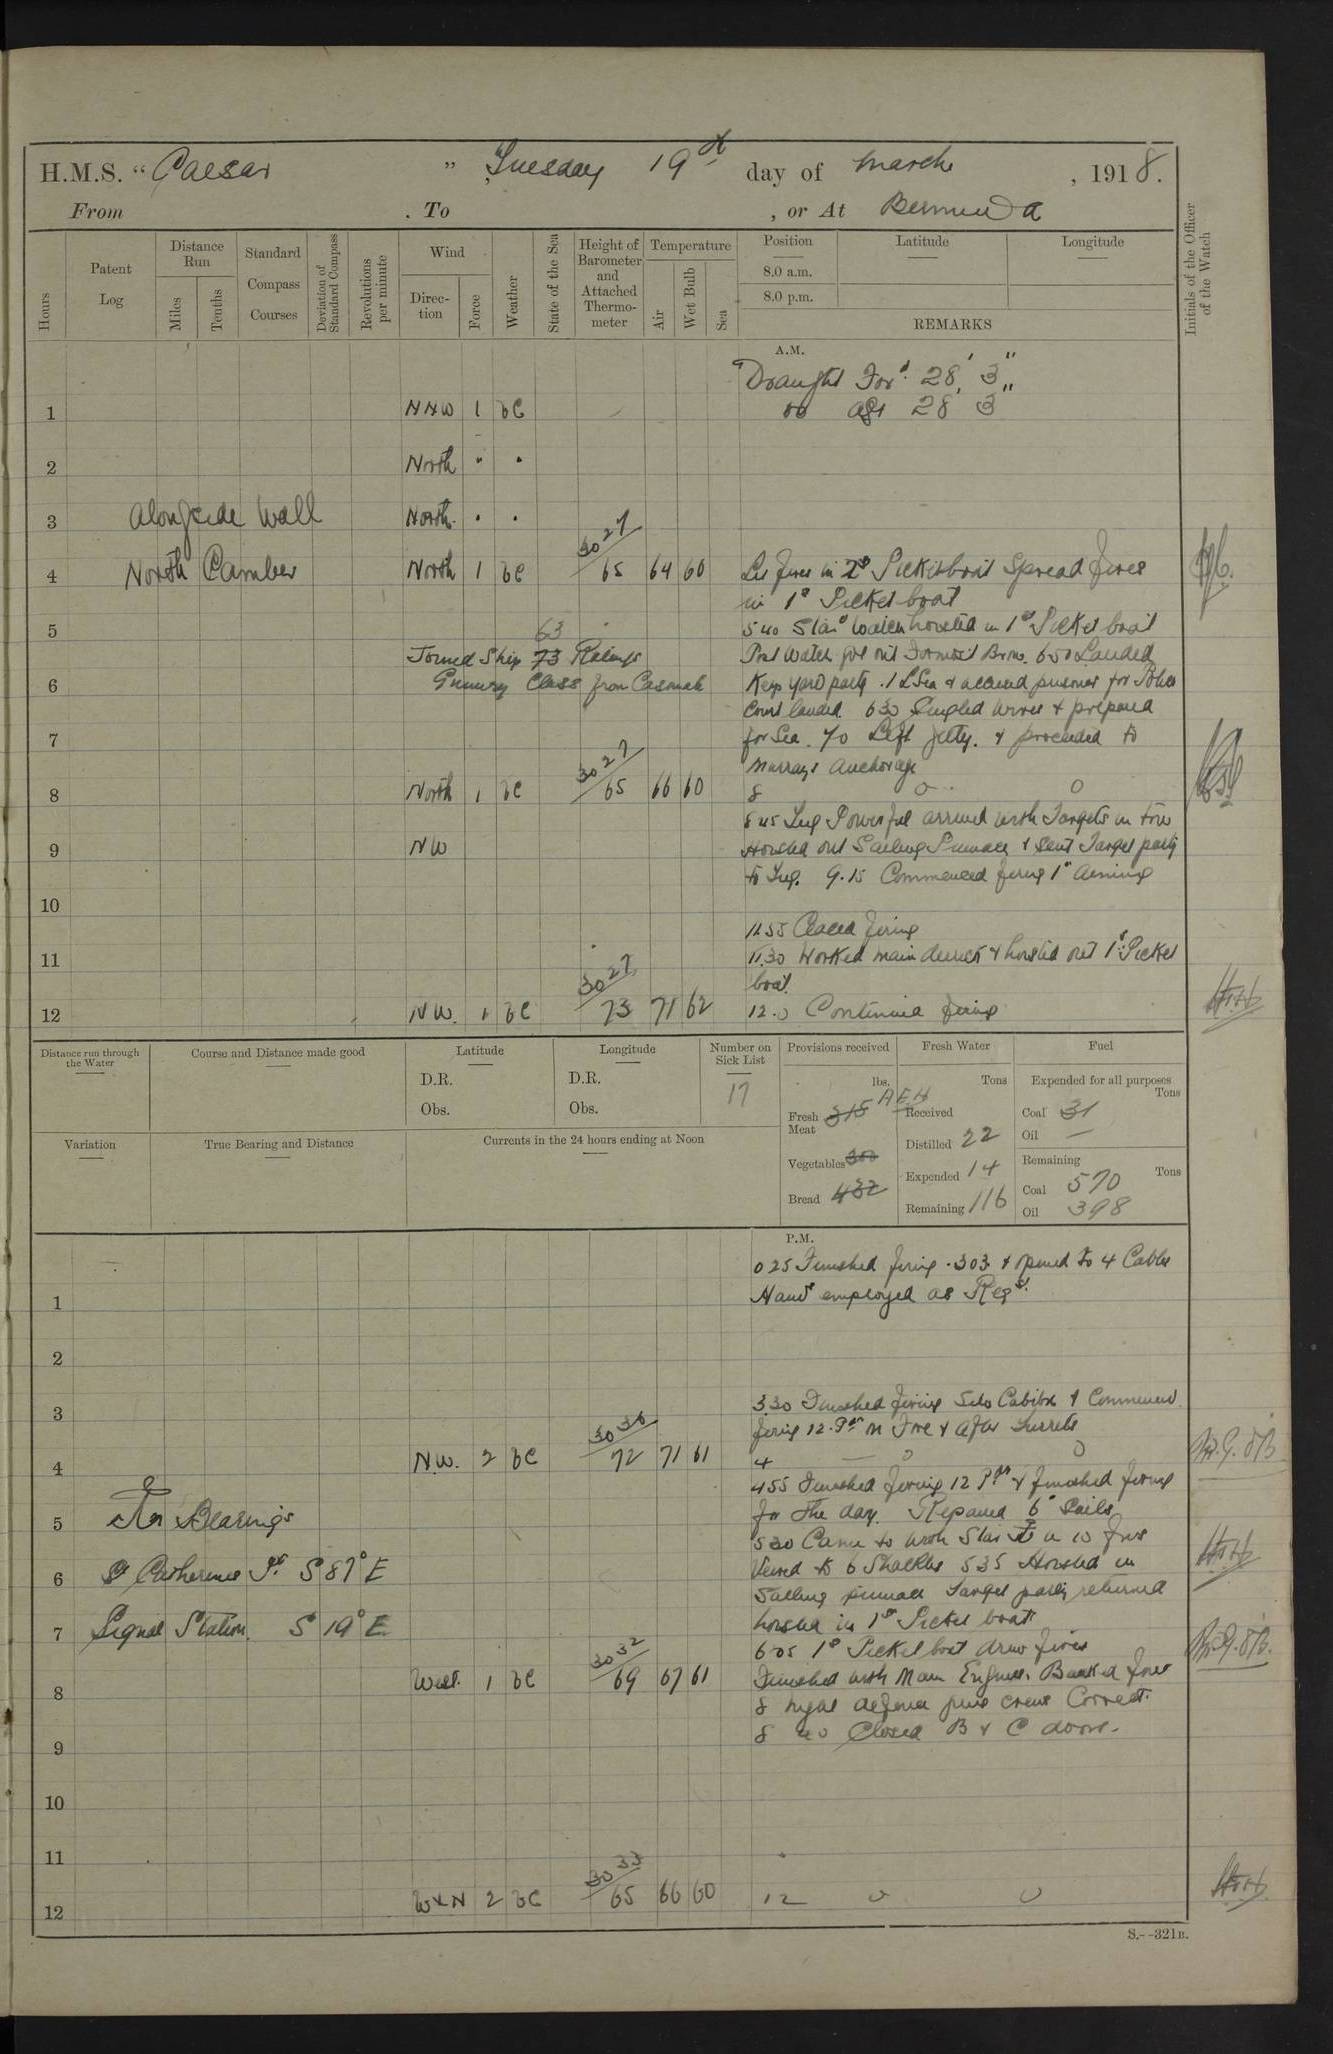 H.M.S. "Caesar", Tuesday 19th day of March, 1918.
From . To , or At Bermuda
Hours
Patent Log
Distance Run
Miles
Tenths
Standard Compass Courses
Deviation of Standard Compass
Revolutions per minute
Wind
Direction
Force
Weather
State of the Sea
Height of Barometer and Attached Thermometer
Temperature
Air
Wet Bulb
Sea
Position
8.0 a.m.
8.0 p.m.
Latitude
Longitude
REMARKS
Initials of the Officer of the Watch
A.M.
Draught For'd. 28' 3"
1 NNW 1 bc do aft 28 3"
2 North " "
3 Alongside Wall North . .
30 27
4 North Camber North 1 bc 65 64 60 Lit fires in 2nd Picketboat Spread fires
in 1st Picket boat
63
5 5 40 Star'd Watch hoisted in 1st Picket boat
Joined Ship 73 Ratings Port Watch got out Foremost Brow. 6 50 Landed
6 Gunnery Class from Casemate Keep Yard party . 1 L Sea & accused prisoner for Police
Court landed. 6 30 Singled wires & prepared
7 for Sea. 7 0 Left Jetty. & proceeded to
30 27 Murrays Anchorage
8 North 1 bc 65 66 60 8
8 45 Tug Powerful arrived with Targets in tow
9 NW Hoisted out Sailing Pinnace & sent Target party
to Tug. 9.15 Commenced firing 1" Aiming
10
11.55 Ceased firing
11 11.30 Worked main derrick & hoisted out 1st Picket
30 27 boat
12 N W. 1 bc 73 71 62 12.0 Continued firing
Distance run through the Water
Course and Distance made good
Latitude
D.R.
Obs.
Longitude
D.R.
Obs.
Number on Sick List
17
Provisions received
lbs.
Fresh Meat 315
Vegetables 300
Bread 432
AEH
Fresh Water
Tons
Received
Distilled 22
Expended 14
Remaining 116
Fuel
Expended for all purposes
Tons
Coal 31
Oil —
Remaining
Tons
Coal 570
Oil 398
Variation
True Bearing and Distance
Currents in the 24 hours ending at Noon
P.M.
0 25 Finished firing .303 & opened to 4 Cables
1 Hands employed as Reqd.
2
3 30 Finished firing Sub Calibre & Commenced
3 firing 12.Pdr on Fore & After Turrets
30 30
4 N.W. 2 bc 72 71 61 4
4 55 Finished firing 12 Pdr & finished firing
5 Bearings for the day. Repaired 6"
5 30 Came to with Star'd in 10 fms
6 St Catherines Pt. S 87° E Veered to 6 Shackles 5 35 Hoisted in
Sailing pinnace Target party returned
7 Signal Station. S 19° E hoisted in 1st Picket boat
30 32 6 05 1st Picket boat drew fires
West. 1 bc 69 67 61 Finished with Main Engines. Banked fires
8 8 night defence guns crews Correct.
8 40 Closed B & C doors.
9
10
11
30 33
12 WxN 2 bc 65 66 60 12
S.--321B.